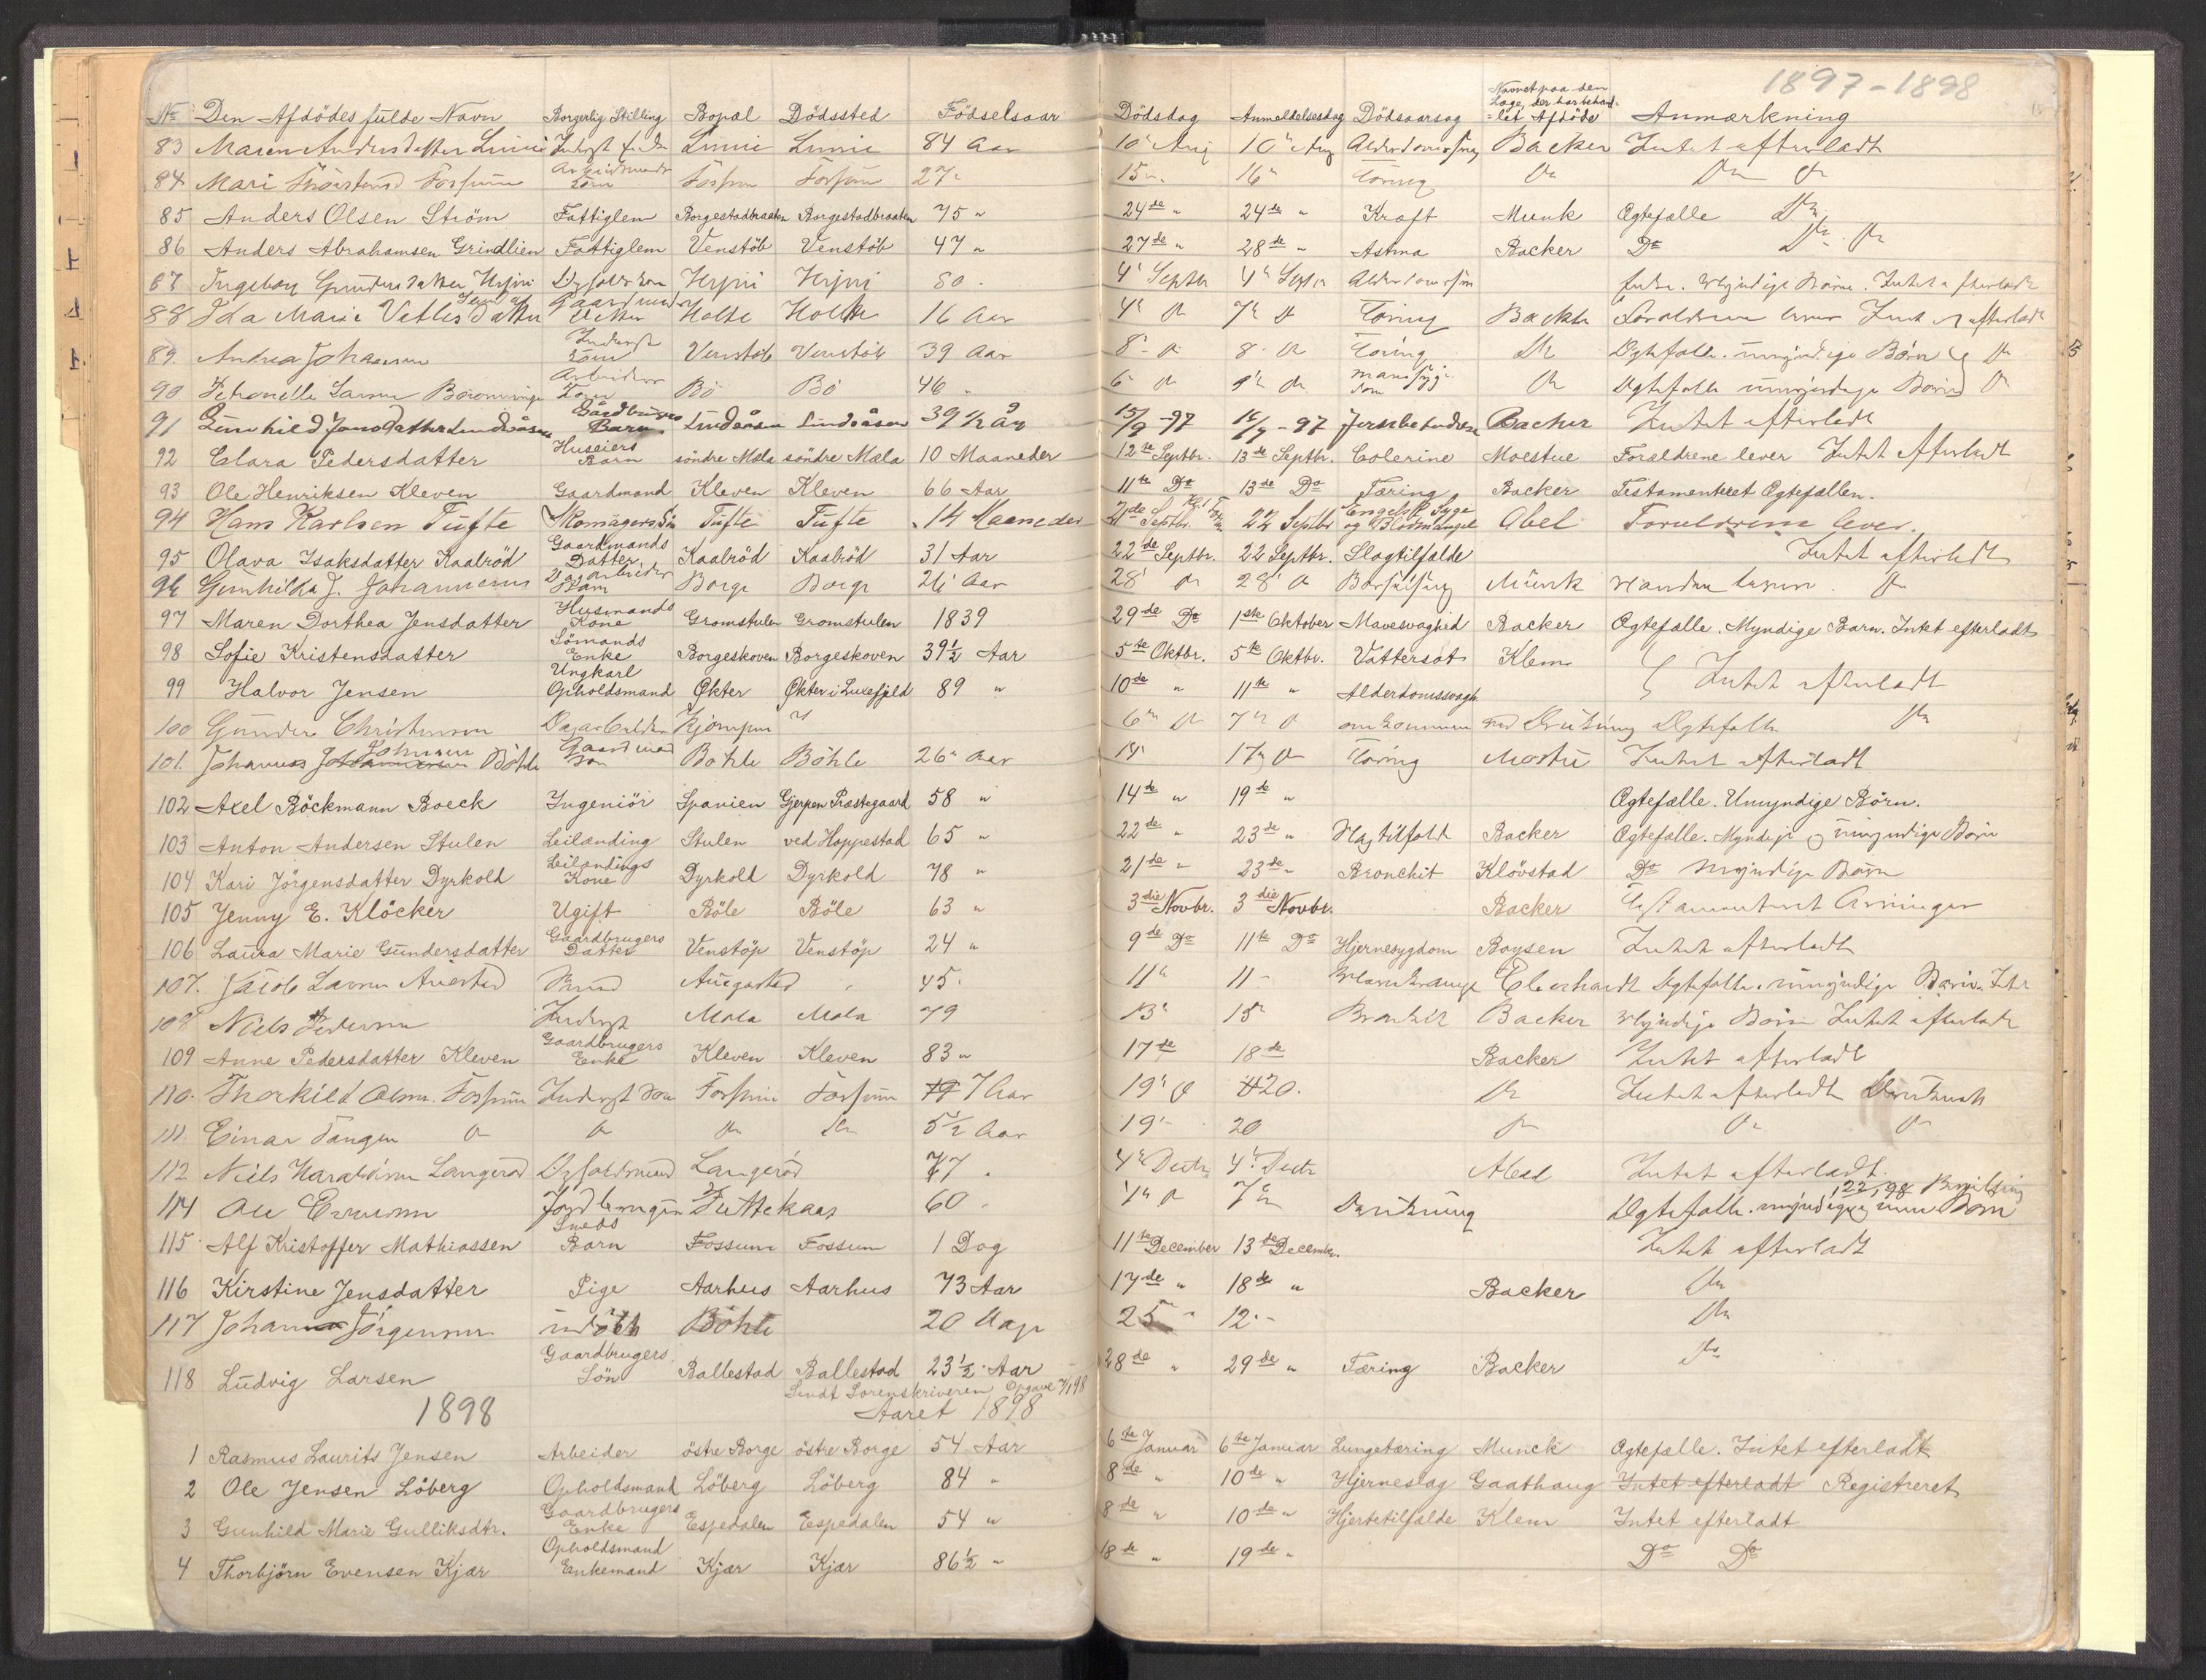 1897-1898
No Den Afdödes fulde Navn Borgerlig Stilling Bopæl Dödssted Födselsaar Dödsdag Anmeldelsesdag Dödsaarsag Navnet paa den Læge, der har behandlet Afdöde Anmærkning
83 Maren Andersdatter Lunde 84 Aar 10 Aug 10 Aug Backer Intet efterladt
84 Mari Fossum Fossum Fossum 27 15 16 Tæring Do Do Do
85 Anders Olsen Ström Fattiglem Borgestadbraaten Borgestadbraaten 75 " 24de " 24de " Kræft Munk Ægtefælle Do
86 Anders Abrahamsen Grindlien Fattiglem Venstöb Venstöb 47 " 27de " 28de " Astma Backer Do Do Do
87 Ingeborg 80 4 Septbr 4 Septbr Myndige Börn. Intet efterladt
88 Ida Marie Vetlesdatter Gaardmand Datter Holte Holte 16 Aar 4 Do 7 Do Tæring Backer Forældrene lever Intet efterladt
89. Andrea Johansen Venstöb Venstöb 39 Aar 8 Do 8 Do Tæring Do Ægtefælle. umyndige Börn Do
90 Larsen Arbeider Bö Bö 46 6 Do 9 Do Do Ægtefælle umyndige Börn Do
91 Gunhild Jensdatter Lindåsen Gårdbruger Barn Lindåsen Lindåsen 39 1/2 År 15/9-97 16/9-97 Backer Intet efterladt
92 Clara Pedersdatter Huseiers Barn söndre Mæla söndre Mæla 10 Maaneder 12te Septbr. 13de Septbr. Colerine Moestue Forældrene lever Intet efterladt
93 Ole Henriksen Kleven Gaardmand Kleven Kleven 66 Aar 11te Do 13de Do Tæring Backer Testamenteret Ægtefællen.
94 Hans Karlsen Tufte Skomagers Sön Tufte Tufte 14 Maaneder 21de Septbr. 22 Septbr Engelsk Syge og Blodmangel Abel Forældrene lever.
95 Olava Isaksdatter Kaalröd Gaardmands Datter Kaalröd Kaalröd 31 Aar 22de Septbr. 22 Septbr. Slagtilfælde Intet efterladt
96 Gunhilda J. Johannesens Dagarbeider Barn Borge Borge 26 Aar 28 Do 28 Do Munk Manden lever Do
97 Maren Dorthea Jensdatter Husmands Kone Gromstulen Gromstulen 1839 29de Do 1ste Oktober Mavesvaghed Backer Ægtefælle. Myndige Barn. Intet efterladt
98 Sofie Kristensdatter Sömands Enke Borgeskoven Borgeskoven 39 1/2 Aar 5te Oktbr. 5te Oktbr. Vattersot Klem
99 Halvor Jensen Ungkarl Opholdsmand Økter Økter i Luxefjeld 89 " 10de " 11te " Alderdomssvagh. Intet efterladt
100 Gunder Christensen Dagarbeider 6 Do 7 Do omkommen ved Drukning Ægtefælle Do
101. Johannes Johnsen Böhle Gaardmand Sön Böhle Böhle 26 Aar 14 17 Do Tæring Moestue Intet efterladt
102 Axel Böckmann Boeck Ingeniör Spanien Gjerpen Præstegaard 58 " 14de " 19de " Ægtefælle. Umyndige Börn.
103 Anton Andersen Stulen Leilænding Stulen ved Hoppestad 65 " 22de " 23de " Slagtilfæld Backer Ægtefælle. Myndige og umyndige Börn
104 Kari Jörgensdatter Dyrkold Leilændings Kone Dyrkold Dyrkold 78 " 21de " 23de " Bronchit Klövstad Do Myndige Börn
105 Jenny E. Klöcker Ugift Böle Böle 63 " 3die Novbr. 3die Novbr. Backer Testamenteret Arvinger
106 Laura Marie Gundersdatter Gaardbrugers Datter Venstöp Venstöp 24 " 9de Do 11te Do Hjernesygdom Boysen Intet efterladt
107. Jacob Larsen Auestad 45. 11 11 Eberhardt Ægtefælle. umyndige Börn. Int
108 Niels Pedersen Inderst Mæla Mæla 79 13 15 Bronkit Backer Myndige Börn Intet efterladt
109 Anne Pedersdatter Kleven Gaardbrugers Enke Kleven Kleven 83 " 17de 18de Backer Intet efterladt
110. Thorkild Olsen Fossum Inderst Sön Fossum Fossum 7 Aar 19 Do 20. Do Intet efterladt Druknet
111 Einar Tangen Do Do Do Do 5 1/2 Aar 19 20 Do Do Do
112 Niels Haraldsen Langeröd Opholdsmand Langeröd 77 4 Decbr 4 Decbr Intet efterladt
114 Ole Jordbruger 60. 7 Do 7 Drukning Ægtefælle. myndige og umyn Börn
115 Alf Kristoffer Mathiassen Smeds Barn Fossum Fossum 1 Dag 11te December 13de Decembr. Intet efterladt
116 Kirstine Jensdatter Pige Aarhus Aarhus 73 Aar 17de " 18de " Backer Do
117 Johan Jörgensen udöbt Böhle 20 Uger 25 12. Do
118 Ludvig Larsen Gaardbrugers Sön Ballestad Ballestad 23 1/2 Aar 28de " 29de " Tæring Backer Do
Sendt Sorenskriveren Opgave 7/1 98
1898 Aaret 1898
1 Rasmus Laurits Jensen Arbeider östre Borge östre Borge 54 Aar 6te Januar 6te Januar Lungetæring Munck Ægtefælle. Intet efterladt
2 Ole Jensen Löberg Opholdsmand Löberg Löberg 84 " 8de " 10de " Hjerneslag Gaathaug Intet efterladt Registreret
3 Gunhild Marie Gulliksdtr. Gaardbrugers Enke Espedalen Espedalen 54 " 8de " 10de " Hjertetilfælde Klem Intet efterladt
4 Thorbjörn Evensen Kjær Opholdsmand Enkemand Kjær Kjær 86 1/2 " 18de " 19de " Do Do